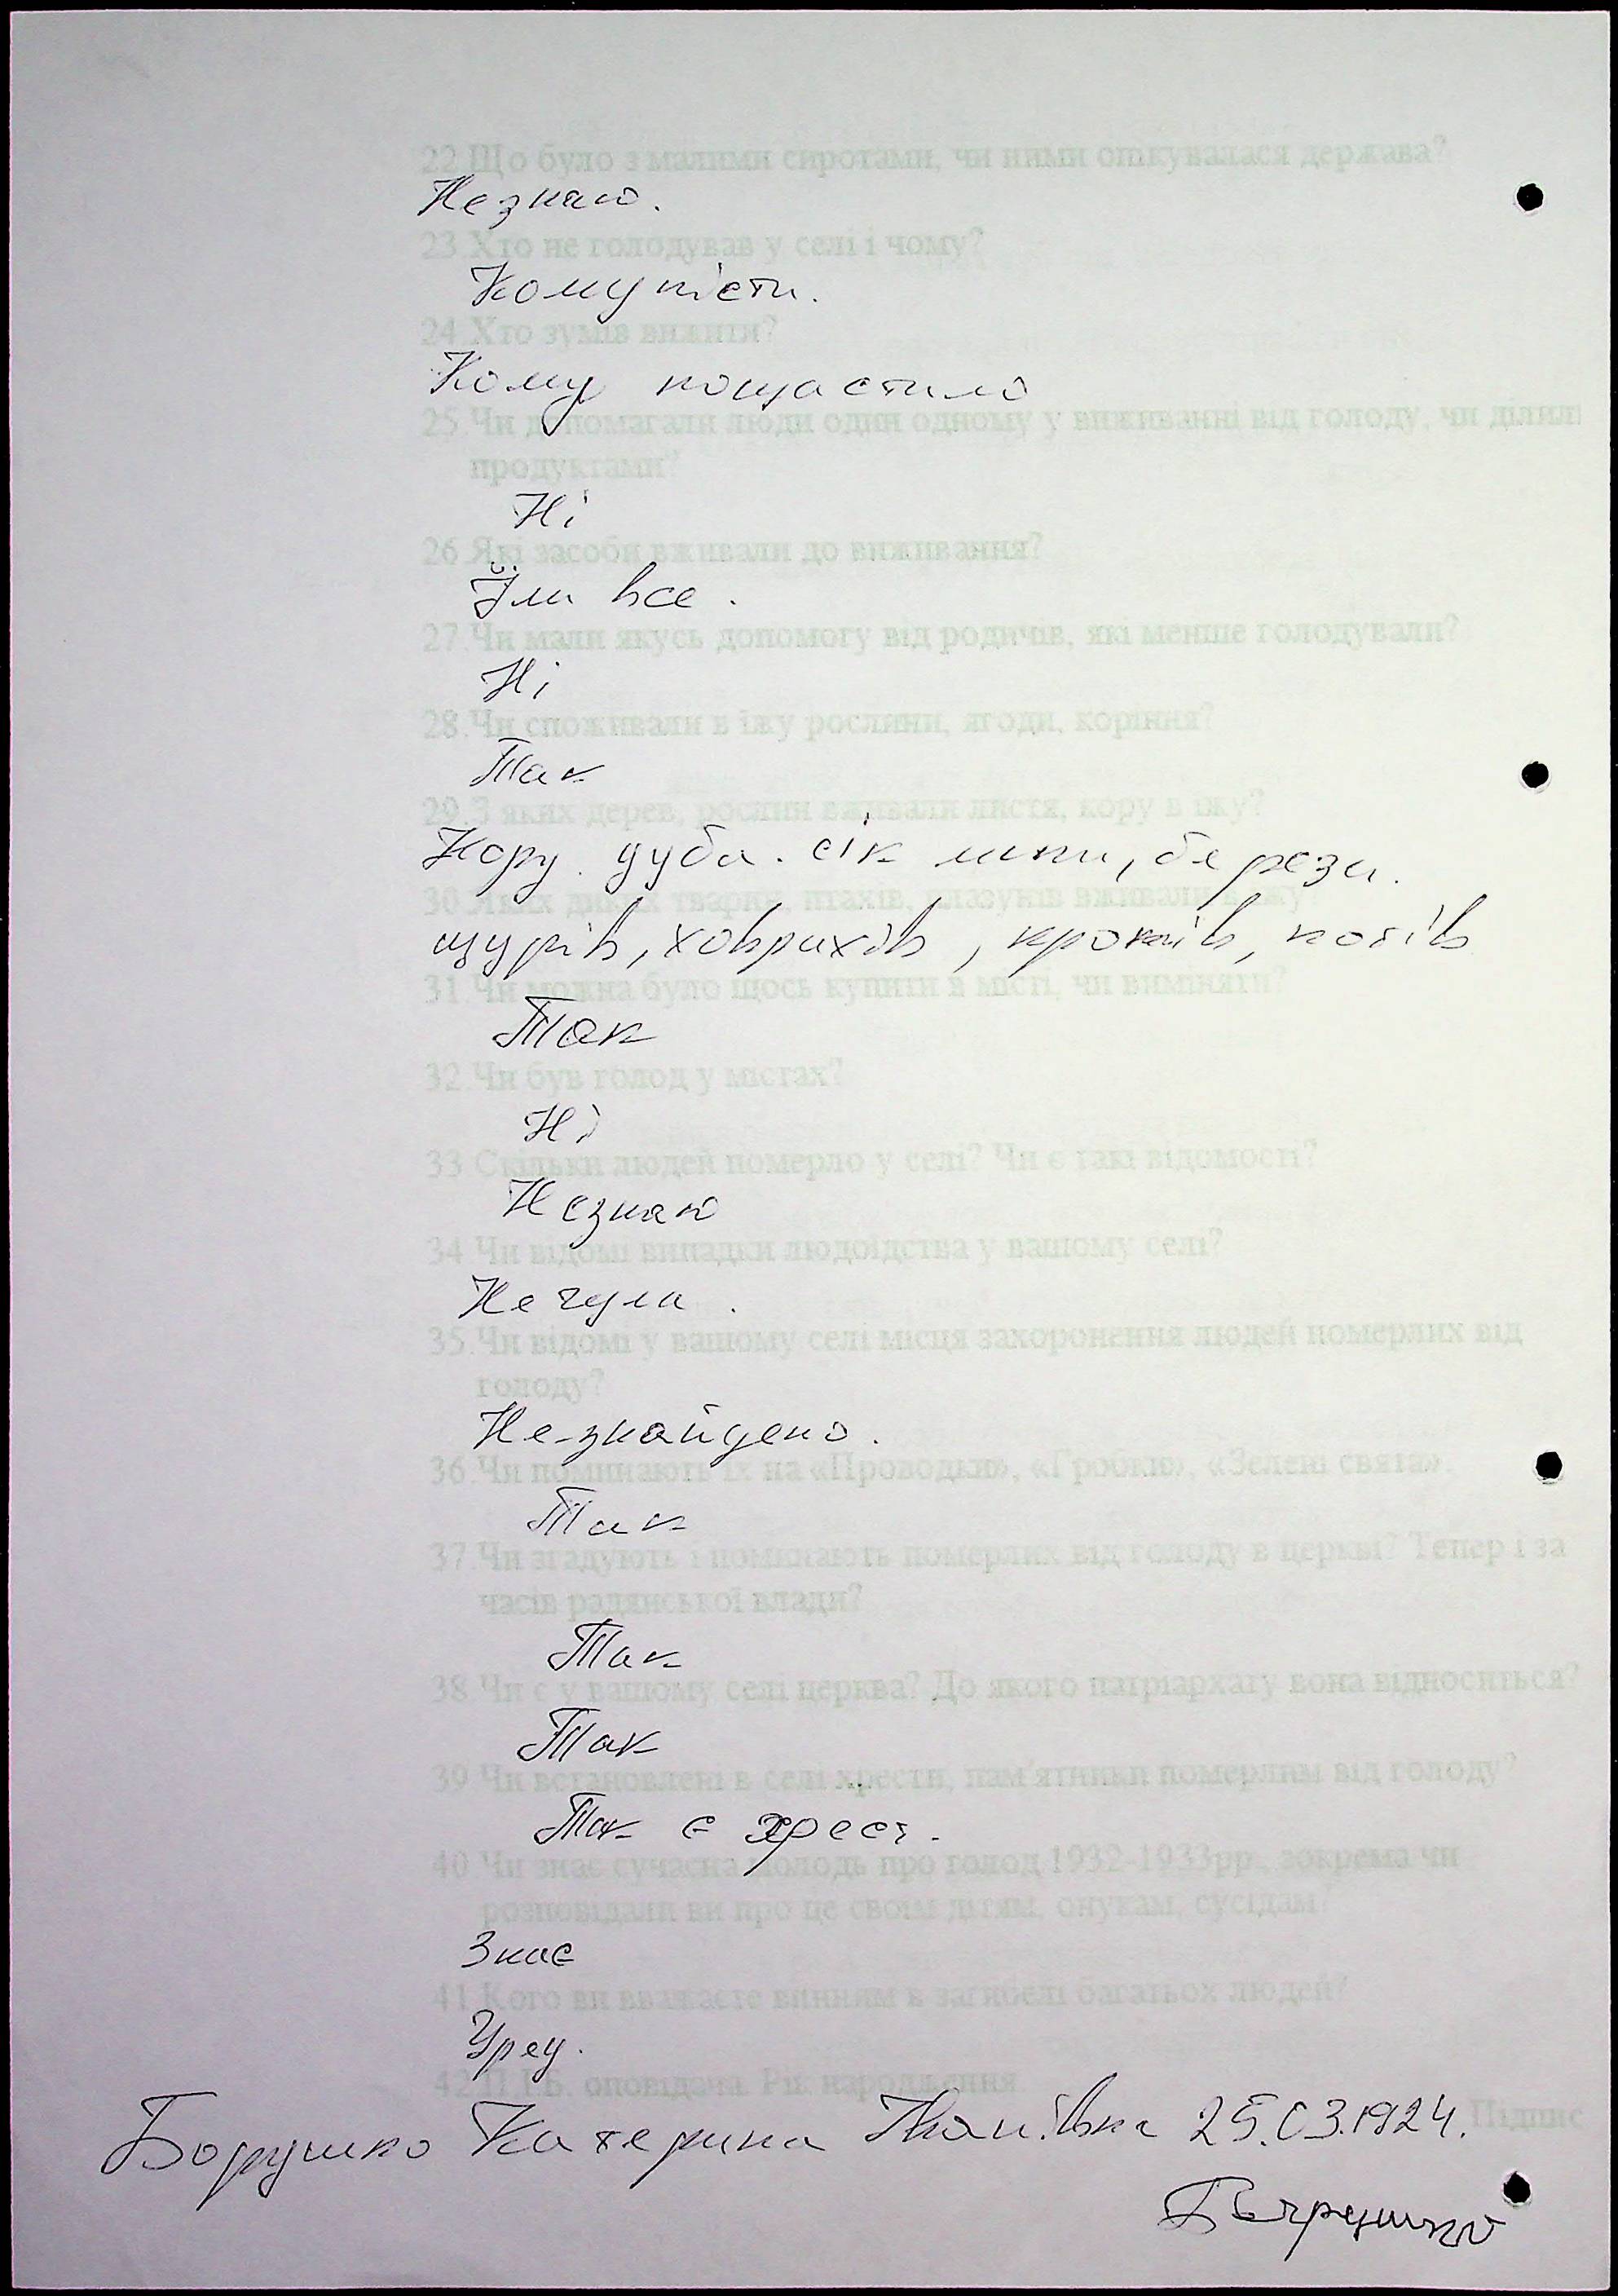 22.Що було з малими сиротами, чи ними опікувалася держава?
Незнаю.
23.Хто не голодував у селі і чому?
Комуністи.
24.Хто зумів вижити?
Кому пощастило
25.Чи допомагали люди один одному у виживанні від голоду, чи ділили
продуктами?
Ні
26.Які засоби вживали до виживання?
Їли все.
27.Чи мали якусь допомогу від родичів, які менше голодували?
Ні
28.Чи споживали в їжу рослини, ягоди, коріння?
Так
29.З яких дерев, рослин вживали листя, кору в їжу?
Кору дуба. сік липи, берези.
30.Яких диких тварин, птахів, плазунів вживали в їжу?
щурів, ховрахів, кротів, котів
31.Чи можна було щось купити в місті, чи виміняти?
Так
32.Чи був голод у містах?
Ні
33.Скільки людей померло у селі? Чи є такі відомості?
Незнаю
34.Чи відомі випадки людоїдства у вашому селі?
Не чула.
35.Чи відомі у вашому селі місця захоронення людей померлих від
голоду?
Не-знайдено.
36.Чи поминають їх на «Проводки», «Гробки», «Зелені свята».
Так
37.Чи згадують і поминають померлих від голоду в церкві? Тепер і за
часів радянської влади?
Так
38.Чи є у вашому селі церква? До якого патріархату вона відноситься?
Так
39.Чи встановлені в селі хрести, пам'ятники померлим від голоду?
Так є хрест.
40.Чи знає сучасна молодь про голод 1932-1933рр., зокрема чи
розповідали ви про це своїм дітям, онукам, сусідам?
Знає
41.Кого ви вважаєте винним в загибелі багатьох людей?
Уряд.
42.П.І.Б. оповідача. Рік народження.
Борушко Катерина Іванівна 25.03.1924. Підпис